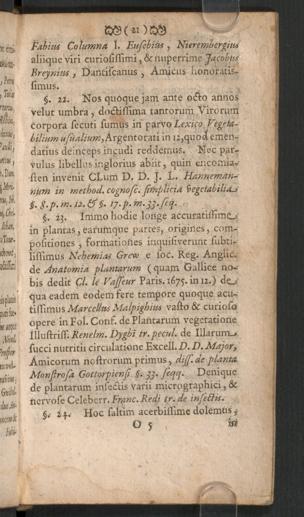 ( 21 )
Fabius Columna l. Eusebius, Nierembergius
aliique viri curiosissimi, & nuperrime Jacobus
Breynius, Dantiscanus, Amicus honoratis-
simus.
§. 22. Nos quoque jam ante octo annos
velut umbra, doctissima tantorum Virorum
corpora secuti sumus in parvo Lexico Vegeta-
bilium usualium, Argentorati in 12, quod emen-
datius deinceps incudi reddemus. Nec par-
vulus libellus inglorius abiit, quin encomia-
sten invenit CLum D. D. J. L. Hanneman-
num in method. cognosc. simplicia vegetabilia
§. 8. p. m. 12. & §. 17. p. m. 33. seq.
§. 23. Immo hodie longe accuratissime
in plantas, earumque partes, origines, com-
positiones, formationes inquisiverunt subti-
lissimus Nehemias Grew e soc. Reg. Anglic.
de Anatomia plantarum (quam Gallice no-
bis dedit Cl. le Vasseur Paris. 1675. in 12.) de
qua eadem eodem fere tempore quoque acu-
tissimus Marcellus Malpighius vasto & curioso
opere in Fol. Conf. de Plantarum vegetatione
Illustriss. Kenelm. Dygbi tr. pecul. de Illarum
succi nutritii circulatione Excell. D. D. Major,
Amicorum nostrorum primus, diss. de planta
Monstrosa Gottorpiensi §. 33. seqq. Denique
de plantarum insectis varii micrographici, &
nervose Celeberr. Franc. Redi tr. de insectis.
§. 24. Hoc saltim acerbissime dolemus,
O 5